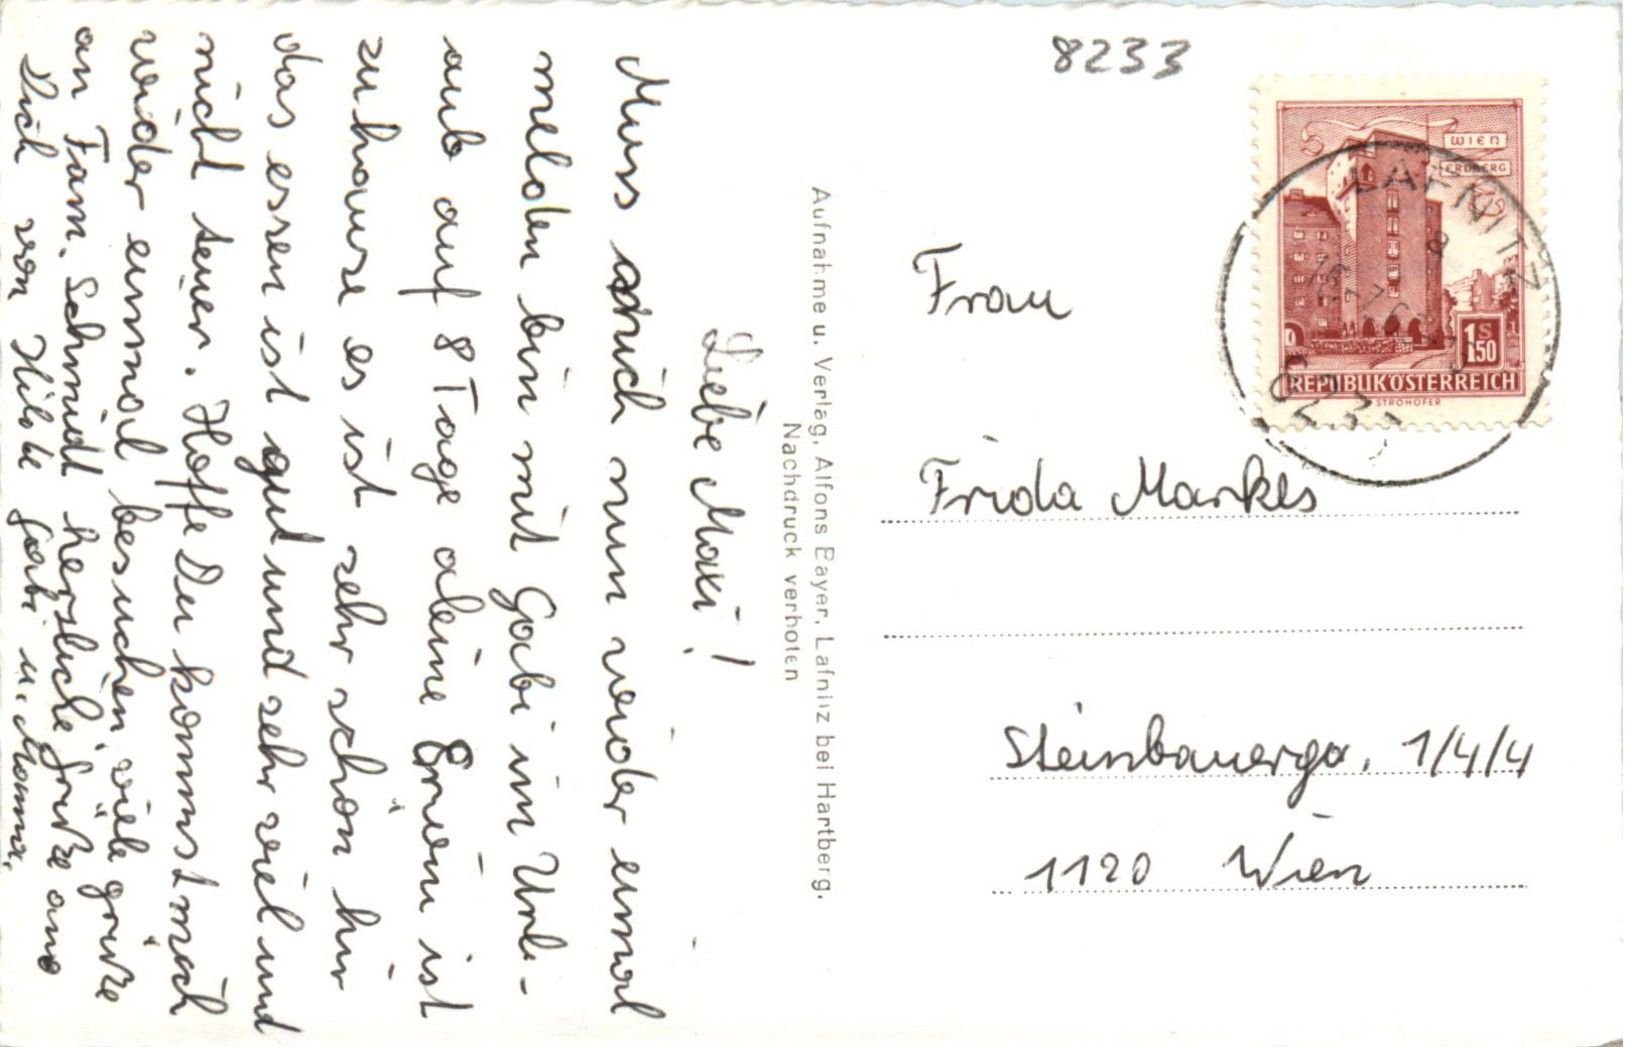 Liebe Maxi!
Muss mich nun wider einmal
melden bin mit Gabi im Urla-
aub auf 8 Tage aleine Erwin ist
zuhause es ist sehr schön hir
das essen ist gut und sehr viel und
nicht teuer. Hoffe Du kommst mich
wider einmal besuchen, viele grüße
an Fam. Schmidt herzliche grüße ans
Dich von Hilde Gabi u. Mama.
Aufnahme u. Verlag, Alfons Bayer, Lafnitz bei Hartberg.
Nachdruck verboten
8233
WIEN
ERDBERG
1 S 50
REPUBLIK ÖSTERREICH
STROHOFER
LAFNITZ
8233
Frau
Frida Markes
Steinbauerga. 1/4/4
1120 Wien